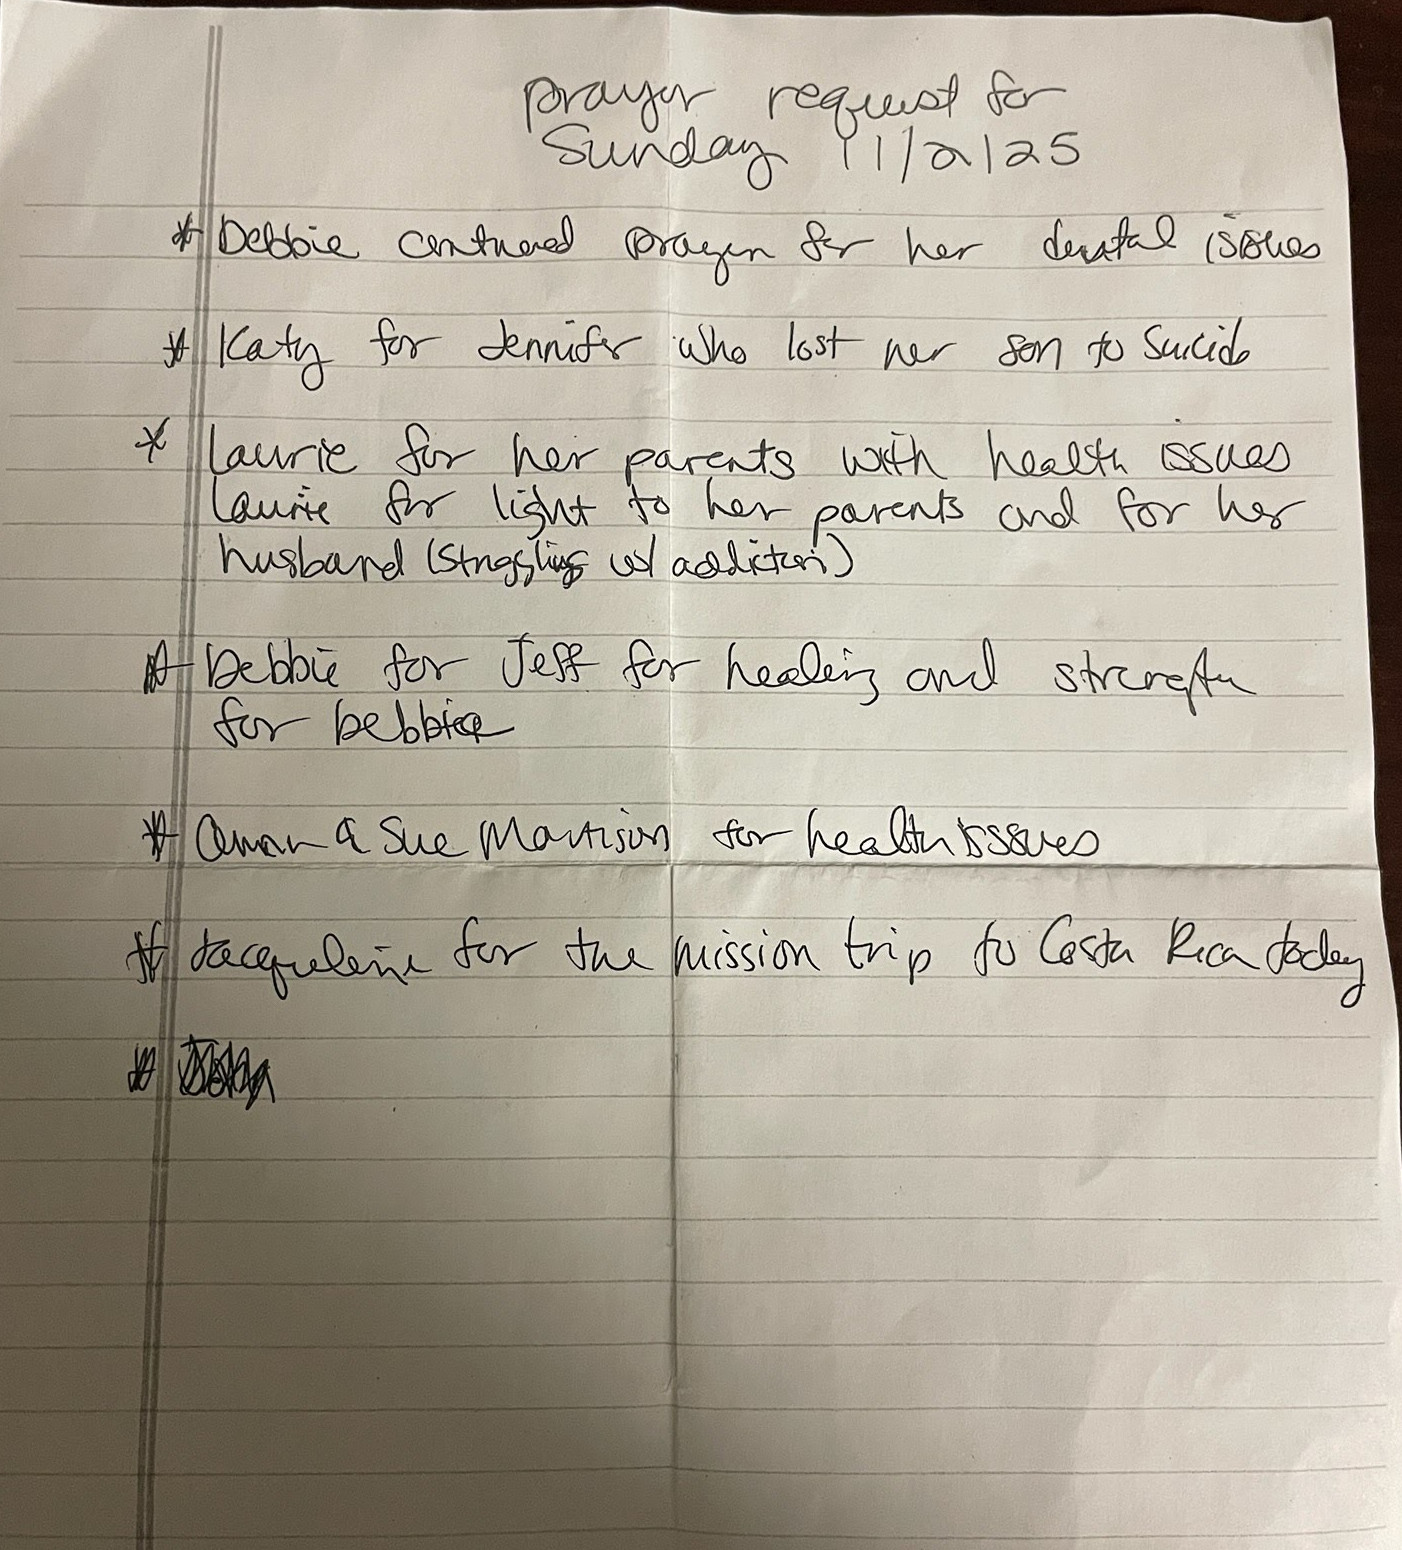 prayer request for
Sunday 11/2/25
* Debbie continued prayer for her dental issues
* Katy for Jennifer who lost her son to Suicide
* Laurie for her parents with health issues
Laurie for light to her parents and for her
husband (struggling w/ addiction)
* Debbie for Jeff for healing and strength
for Debbie
* & Sue for health issues
* Jacqueleine for the mission trip to Costa Rica today
*